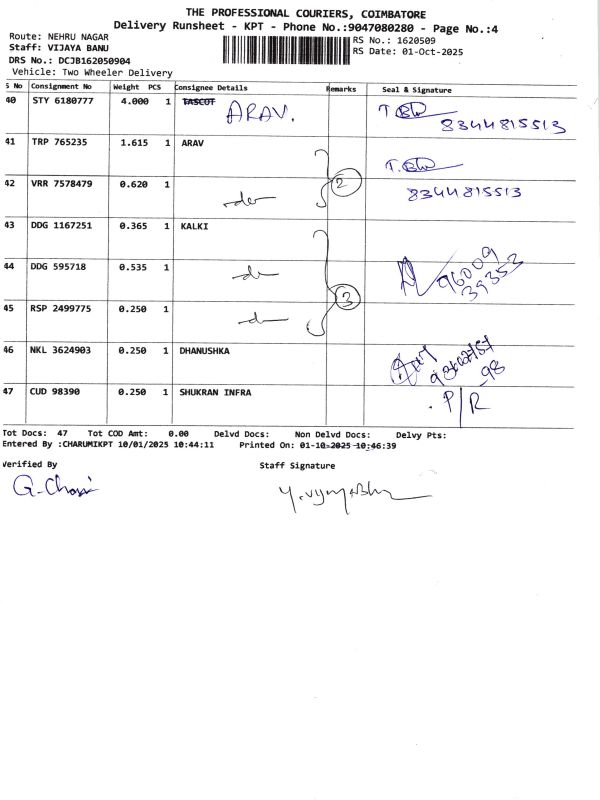 THE PROFESSIONAL COURIERS, COIMBATORE
Delivery Runsheet - KPT - Phone No.:9047080280 - Page No.:4
Route: NEHRU NAGAR
RS No.: 1620509
Staff: VIJAYA BANU
RS Date: 01-Oct-2025
DRS No.: DCJB162050904
Vehicle: Two Wheeler Delivery
S No Consignment No Weight PCS Consignee Details Remarks Seal & Signature
40 STY 6180777 4.000 1 TASCOT ARAV.
8344815513
41 TRP 765235 1.615 1 ARAV
42 VRR 7578479 0.620 1 2 8344815513
43 DDG 1167251 0.365 1 KALKI
44 DDG 595718 0.535 1 96009
39353
45 RSP 2499775 0.250 1 3
46 NKL 3624903 0.250 1 DHANUSHKA
98
47 CUD 98390 0.250 1 SHUKRAN INFRA P/R
Tot Docs: 47 Tot COD Amt: 0.00 Delvd Docs: Non Delvd Docs: Delvy Pts:
Entered By :CHARUMIKPT 10/01/2025 10:44:11 Printed On: 01-10-2025 10:46:39
Verified By Staff Signature